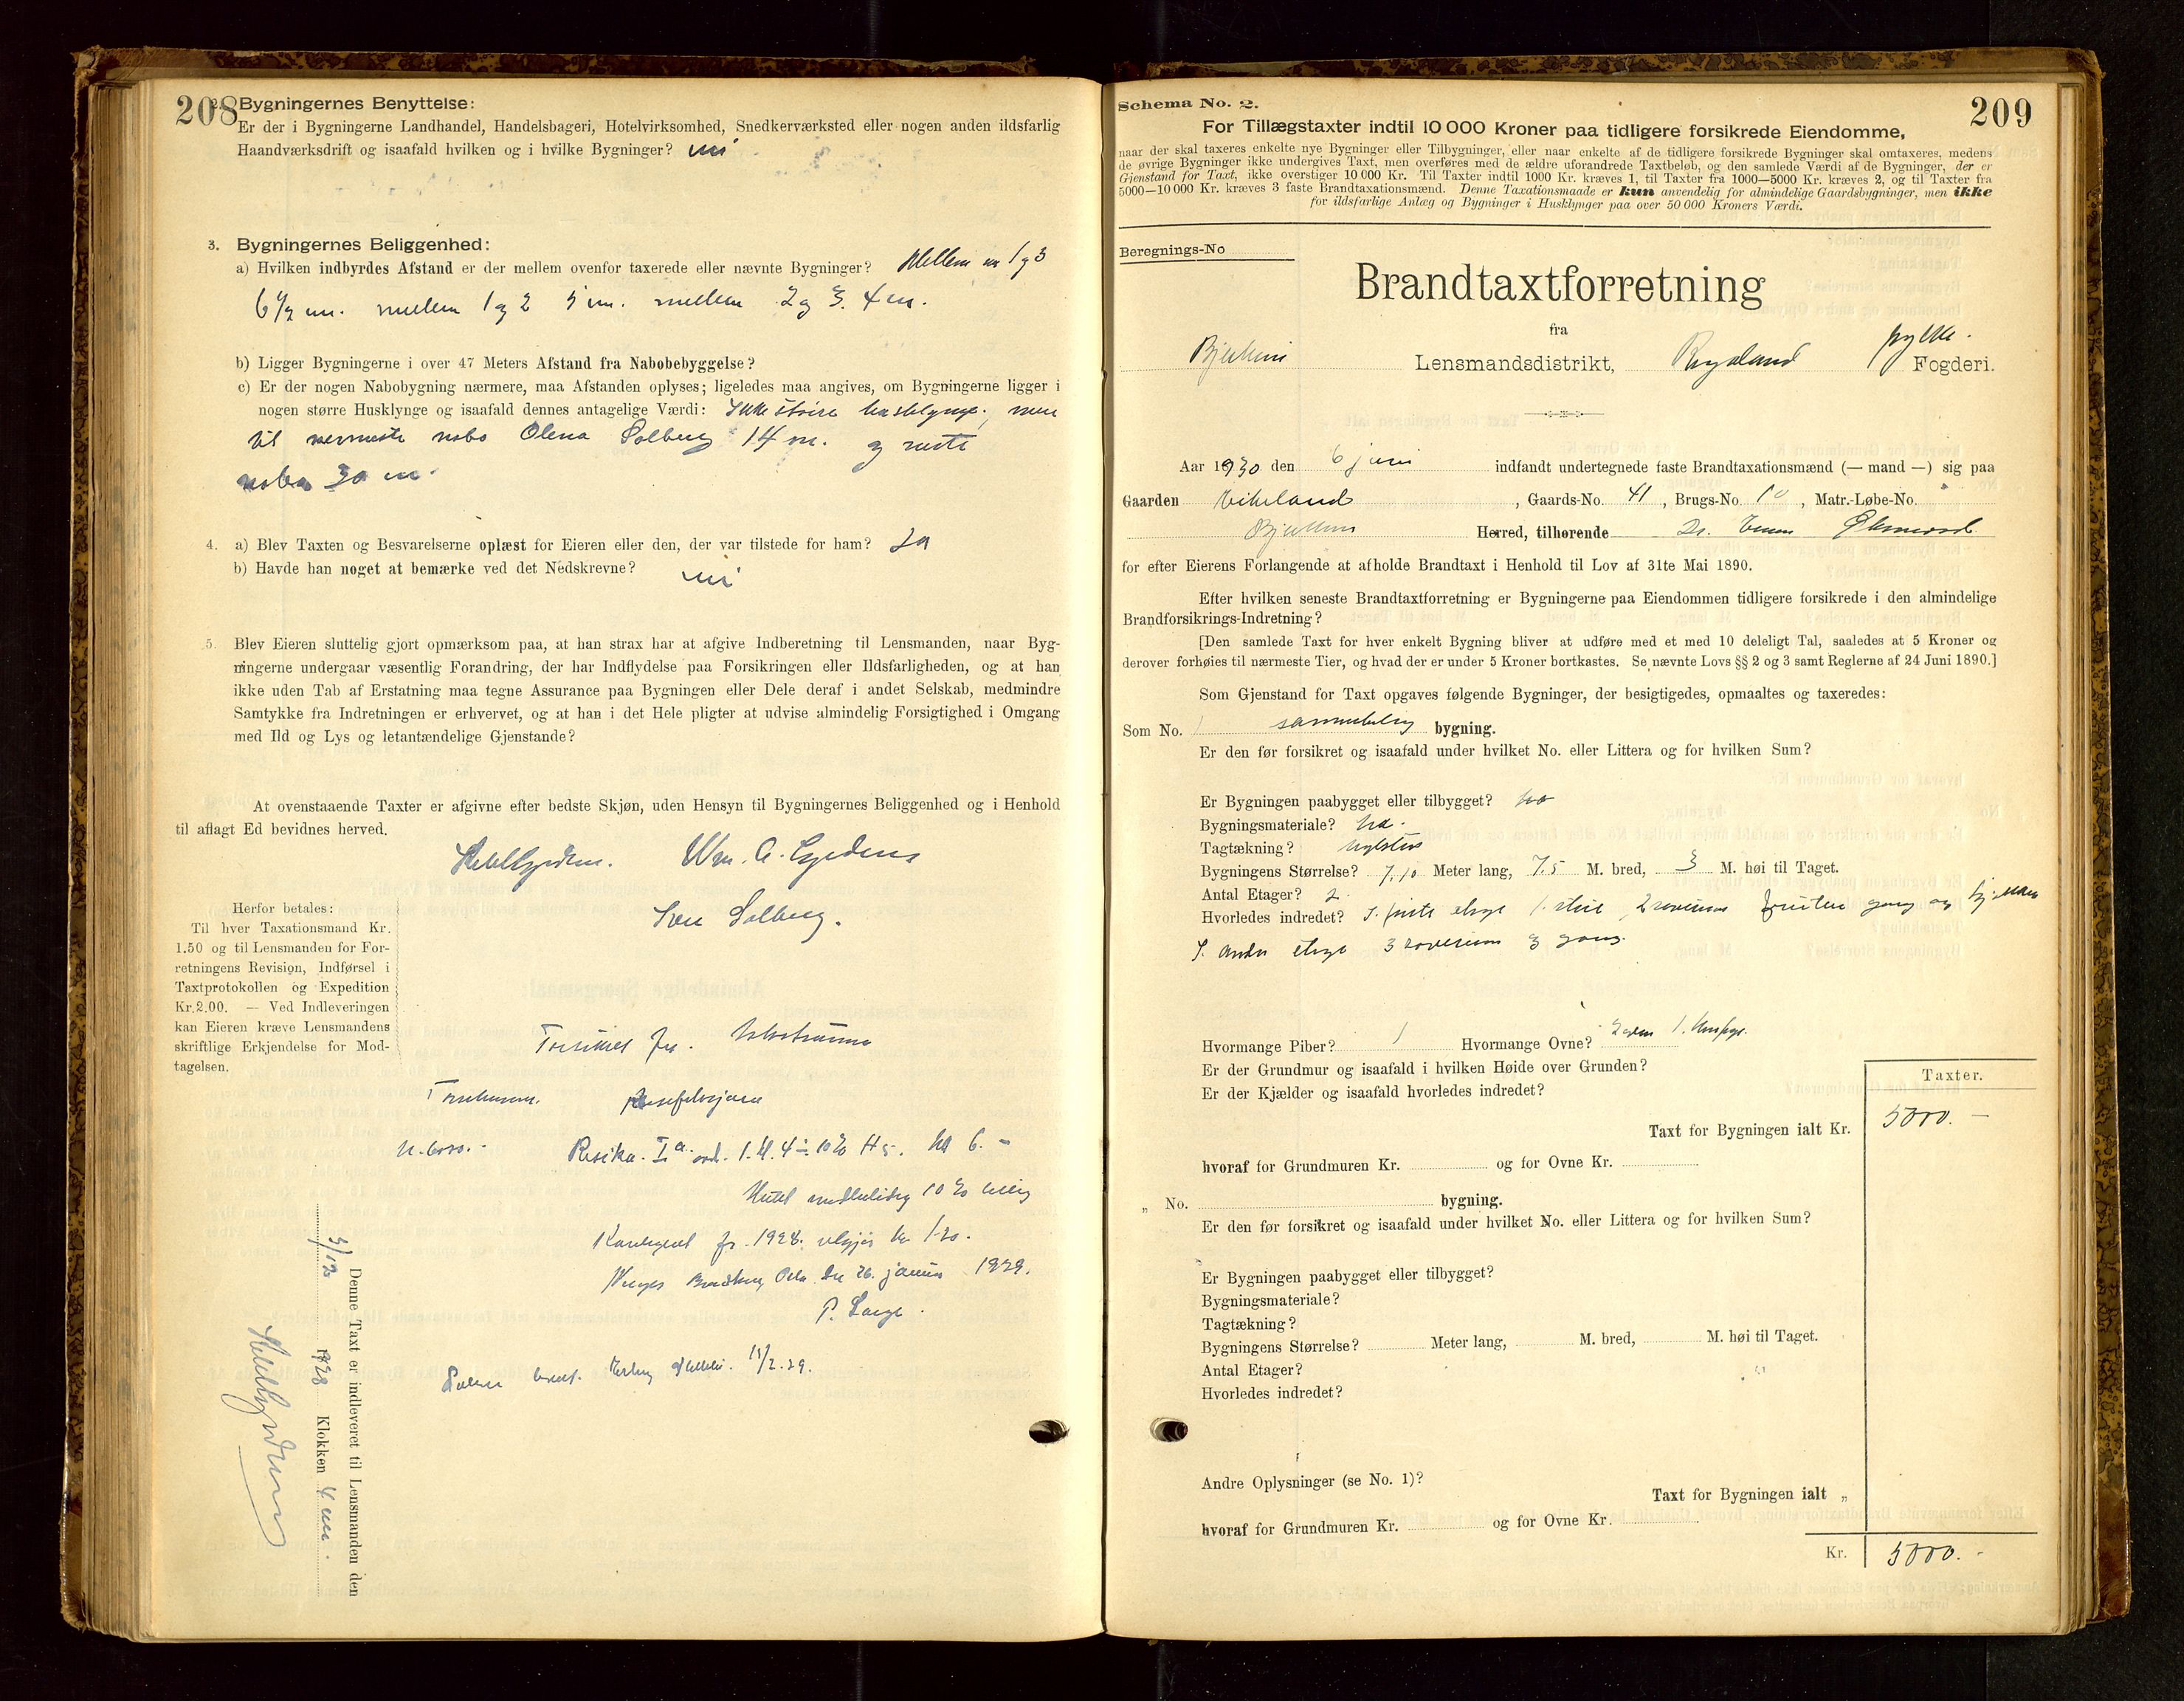 208
Bygningernes Benyttelse:
Er der i Bygningerne Landhandel, Handelsbageri, Hotelvirksomhed, Snedkerværksted eller nogen anden ildsfarlig
Haandværksdrift og isaafald hvilken og i hvilke Bygninger? nei
3. Bygningernes Beliggenhed:
a) Hvilken indbyrdes Afstand er der mellem ovenfor taxerede eller nævnte Bygninger? Mellem nr 1 og 3
6 1/2 m. mellem 1 og 2 5 m. mellem 2 og 3. 4 m.
b) Ligger Bygningerne i over 47 Meters Afstand fra Nabobebyggelse?
c) Er der nogen Nabobygning nærmere, maa Afstanden oplyses; ligeledes maa angives, om Bygningerne ligger i
nogen større Husklynge og isaafald dennes antagelige Værdi: Ikke større husklynge, men
til nermeste nabo Olena Solberg 14 m. og neste
nabo 30 m.
4. a) Blev Taxten og Besvarelserne oplæst for Eieren eller den, der var tilstede for ham? Ja
b) Havde han noget at bemærke ved det Nedskrevne? nei
5. Blev Eieren sluttelig gjort opmærksom paa, at han strax har at afgive Indberetning til Lensmanden, naar Byg-
ningerne undergaar væsentlig Forandring, der har Indflydelse paa Forsikringen eller Ildsfarligheden, og at han
ikke uden Tab af Erstatning maa tegne Assurance paa Bygningen eller Dele deraf i andet Selskab, medmindre
Samtykke fra Indretningen er erhvervet, og at han i det Hele pligter at udvise almindelig Forsigtighed i Omgang
med Ild og Lys og letantændelige Gjenstande?
At ovenstaaende Taxter er afgivne efter bedste Skjøn, uden Hensyn til Bygningernes Beliggenhed og i Henhold
til aflagt Ed bevidnes herved.
Wm. A.
Solberg.
Herfor betales:
Til hver Taxationsmand Kr.
1.50 og til Lensmanden for For-
retningens Revision, Indførsel i
Taxtprotokollen og Expedition
Kr. 2.00. — Ved Indleveringen
kan Eieren kræve Lensmandens
skriftlige Erkjendelse for Mod-
tagelsen.
Risiko. Ia 1. 4. 4 10% H 5. kl 6. -
10% tillæg
Kontingent for 1928. utgjør kr 1.20.
Norges Brandkasse, Oslo den 26. januar 1929.
P.
11/2.29.
Denne Taxt er indleveret til Lensmanden den
3/12 1928 Klokken 4 em.
Schema No. 2.
209
For Tillægstaxter indtil 10 000 Kroner paa tidligere forsikrede Eiendomme,
naar der skal taxeres enkelte nye Bygninger eller Tilbygninger, eller naar enkelte af de tidligere forsikrede Bygninger skal omtaxeres, medens
de øvrige Bygninger ikke undergives Taxt, men overføres med de ældre uforandrede Taxtbeløb, og den samlede Værdi af de Bygninger, der er
Gjenstand for Taxt, ikke overstiger 10 000 Kr. Til Taxter indtil 1000 Kr. kræves 1, til Taxter fra 1000—5000 Kr. kræves 2, og til Taxter fra
5000—10 000 Kr. kræves 3 faste Brandtaxationsmænd. Denne Taxationsmaade er kun anvendelig for almindelige Gaardsbygninger, men ikke
for ildsfarlige Anlæg og Bygninger i Husklynger paa over 50 000 Kroners Værdi.
Beregnings-No
Brandtaxtforretning
fra
Bjerkreim Lensmandsdistrikt, Rogaland fylke. Fogderi.
Aar 1930 den 6 juni indfandt undertegnede faste Brandtaxationsmænd (— mand —) sig paa
Gaarden Vikeland, Gaards-No. 41, Brugs-No. 10, Matr.-Løbe-No.
Bjerkreim Herred, tilhørende
for efter Eierens Forlangende at afholde Brandtaxt i Henhold til Lov af 31te Mai 1890.
Efter hvilken seneste Brandtaxtforretning er Bygningerne paa Eiendommen tidligere forsikrede i den almindelige
Brandforsikrings-Indretning?
[Den samlede Taxt for hver enkelt Bygning bliver at udføre med et med 10 deleligt Tal, saaledes at 5 Kroner og
derover forhøies til nærmeste Tier, og hvad der er under 5 Kroner bortkastes. Se nævnte Lovs §§ 2 og 3 samt Reglerne af 24 Juni 1890.]
Som Gjenstand for Taxt opgaves følgende Bygninger, der besigtigedes, opmaaltes og taxeredes:
Som No. 1 bygning.
Er den før forsikret og isaafald under hvilket No. eller Littera og for hvilken Sum?
Er Bygningen paabygget eller tilbygget?
Bygningsmateriale?
Tagtækning?
Bygningens Størrelse? 7.10 Meter lang, 7.5 M. bred, 3 M. høi til Taget.
Antal Etager? 2
Hvorledes indredet? I. første etage 1. stue, 2 soverum gang og kjøkken
I. andre etage 3 soverum og gang.
Hvormange Piber? 1 Hvormange Ovne? 1.
Er der Grundmur og isaafald i hvilken Høide over Grunden?
Er der Kjælder og isaafald hvorledes indredet?
Taxter.
Taxt for Bygningen ialt Kr. 5000. —
hvoraf for Grundmuren Kr. og for Ovne Kr.
„ No. bygning.
Er den før forsikret og isaafald under hvilket No. eller Littera og for hvilken Sum?
Er Bygningen paabygget eller tilbygget?
Bygningsmateriale?
Tagtækning?
Bygningens Størrelse? Meter lang, M. bred, M. høi til Taget.
Antal Etager?
Hvorledes indredet?
Andre Oplysninger (se No. 1)?
Taxt for Bygningen ialt „
hvoraf for Grundmuren Kr. og for Ovne Kr.
Kr. 5000. -